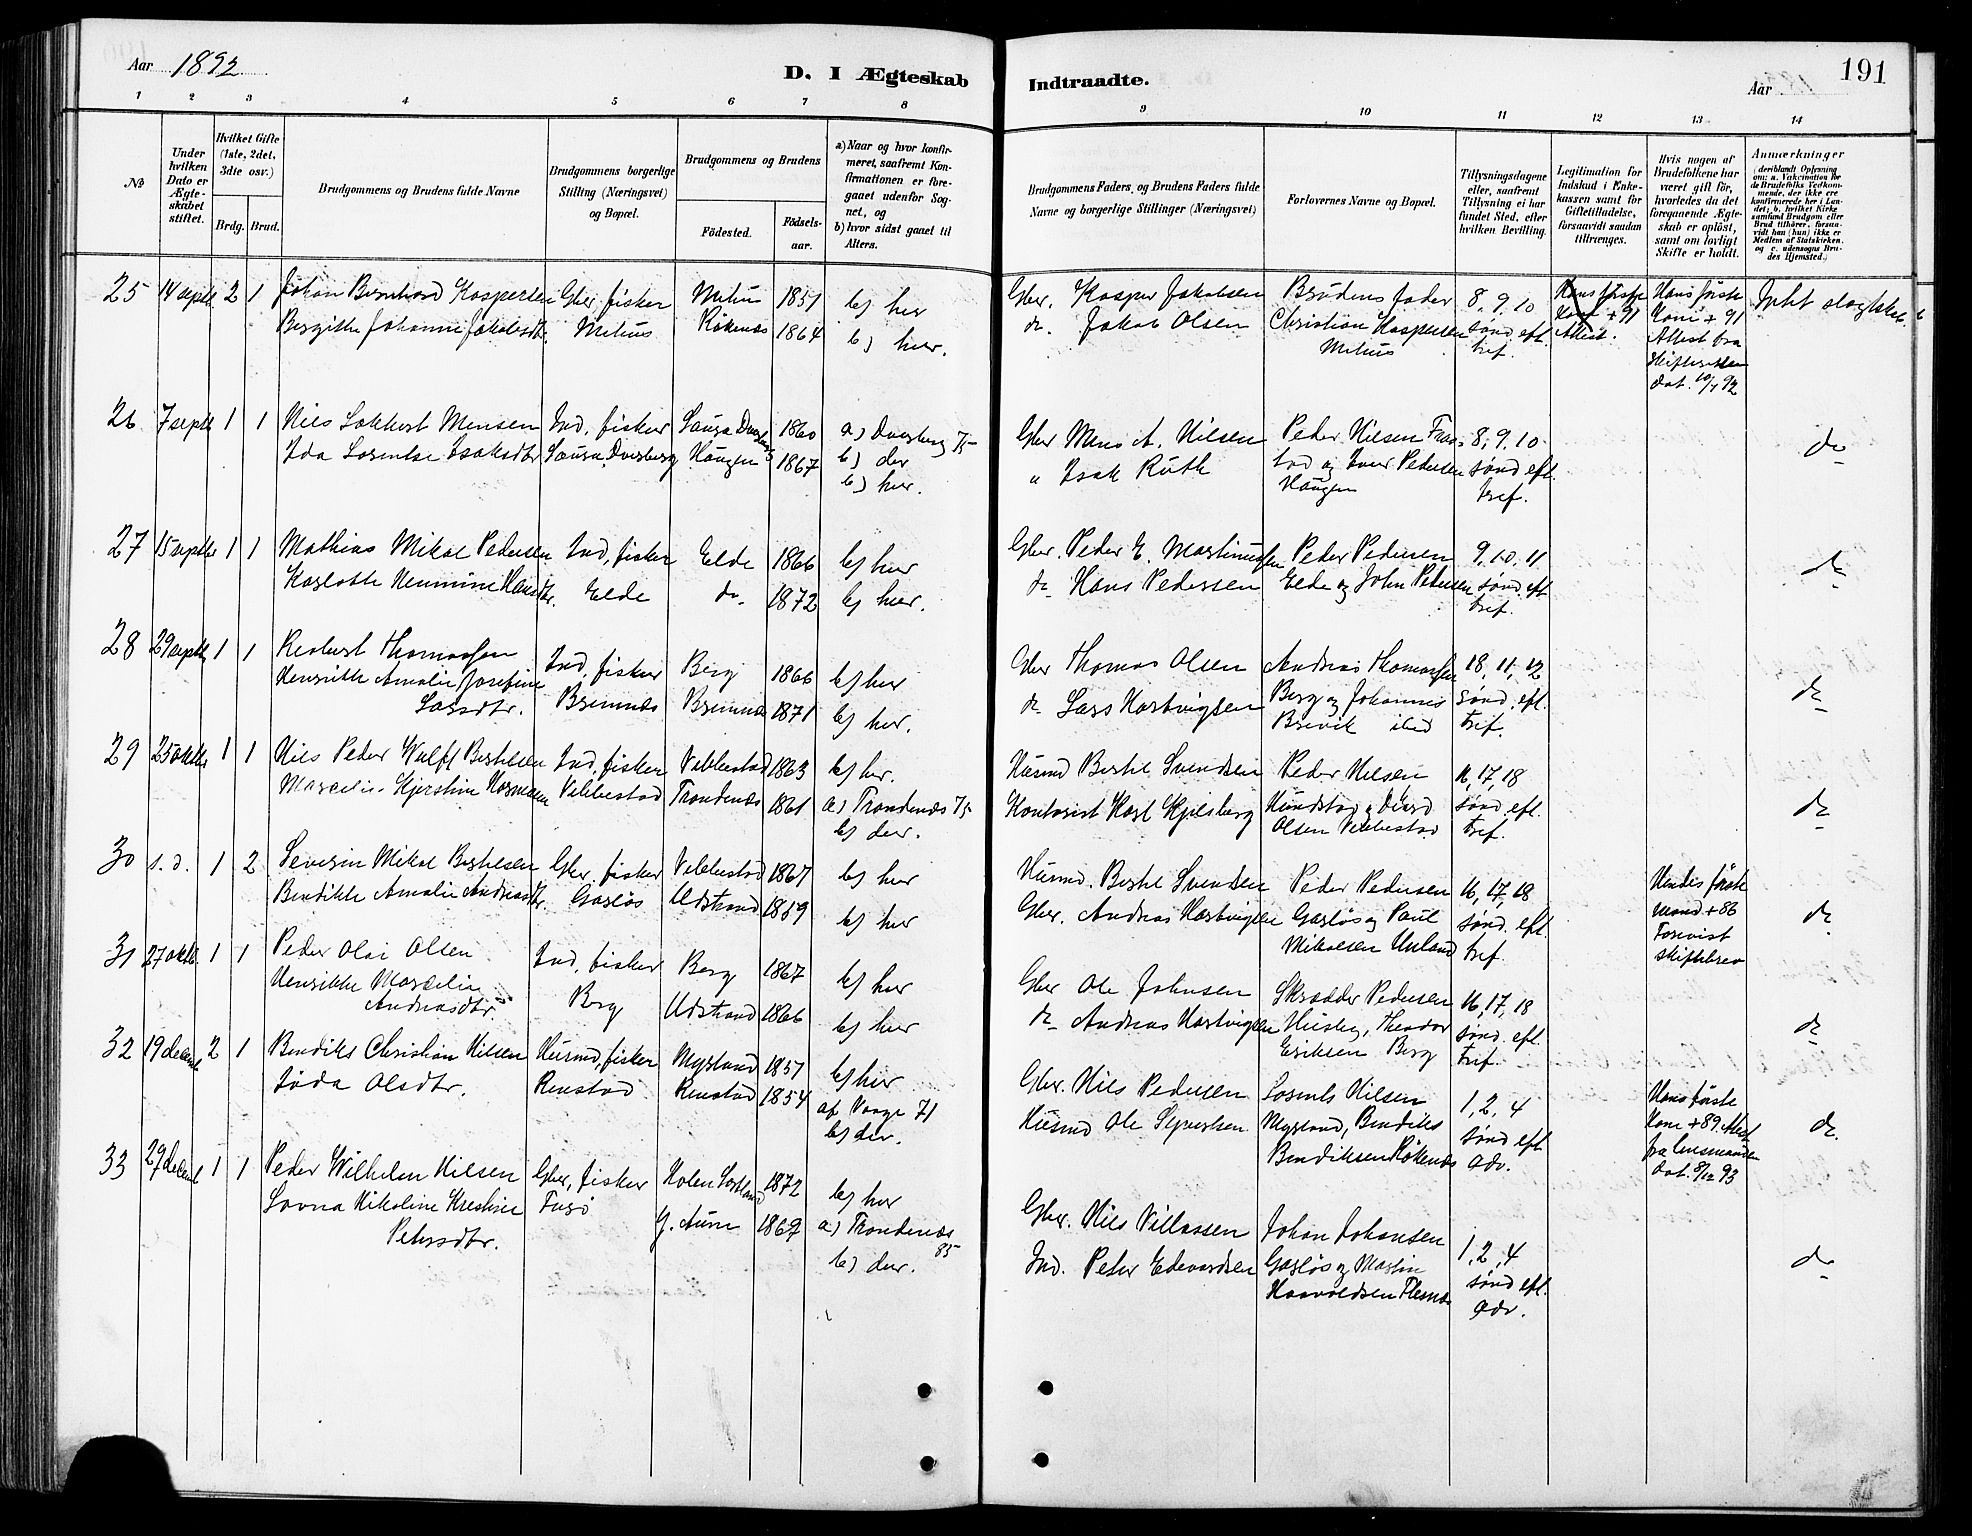 Aar 1892
D. I Ægteskab
Indtraadte.
Aar
191
1 2 3 4 5 6 7 8
9 10 11 12 13 14
No
Under hvilken Dato er Ægteskabet stiftet.
Hvilket Gifte (1ste, 2det, 3dte osv.)
Brdg. Brud.
Brudgommens og Brudens fulde Navne
Brudgommens borgerlige Stilling (Næringsvei) og Bopæl.
Brudgommens og Brudens
Fødested.
Fødselsaar.
a) Naar og hvor konfirmeret, saafremt Konfirmationen er foregaaet udenfor Sognet, og
b) hvor sidst gaaet til Alters.
Brudgommens Faders og Brudens Faders fulde Navne og borgerlige Stillinger (Næringsvei)
Forlovernes Navne og Bopæl.
Tillysningsdagene eller, saafremt Tillysning ei har fundet Sted, efter hvilken Bevilling.
Legitimation for Indskud i Enkekassen samt for Giftetilladelse, forsaavidt saadan tiltrænges.
Hvis nogen af Brudefolkene har været gift før, hvorledes da det foregaaende Ægteskab er opløst, samt om lovligt Skifte er holdt.
Anmærkninger
(deriblandt Oplysning om: a. Vakcination for de Brudefolks Vedkommende, der ikke ere konfirmerede her i Landet; b. hvilket Kirkesamfund Brudgom eller Brud tilhører, forsaavidt han (hun) ikke er Medlem af Statskirken, og c. udensogns Brudes Hjemsted.)
25 14 septb 2 1 Johan Bernhard Kaspersen Gbr, fisker Melus 1851 b) her
Bergitte Johanne Jakobsdtr. Melus Røkenæs 1864 b) her.
Gbr. Kasper Jakobsen Brudens fader 8, 9, 10 Hans første Hans første
do Jakob Olsen Christian Kaspersen sønd. eft. Kone + 91 Kone + 91
Melus tref. Attest. Attest fra
Skifteretten
dat. 10/4 92
26 7 septb 1 1 Nils Lokkert Mensen Ind, fisker Saura Dverberg 1860 a) Dverberg 75
Ida Lorentse Isaksdtr Saura, Dverberg Haugen 1867 b) der
b) her.
Gbr Mens A. Nilsen Peder Nilsen 8, 9, 10 do
" Isak Ruth og Iver Pedersen sønd. eft.
Haugen tref.
27 15 septbr 1 1 Mathias Mikal Pedersen Ind, fisker Elde 1866 b) her
Karlotte Hemmine Hansdtr. Elde do. 1872 b) her.
Gbr. Peder E. Martinussen Peder Pedersen 9, 10, 11 do
do Hans Pedersen Elde og John Pedersen sønd. eft
tref.
28 29 septb 1 1 Reabert Thomassen Ind, fisker Berg 1866 b) her
Henrikke Amalie Josefine Bremnes Bremnes 1871 b) her.
Larsdtr.
Gbr Thomas Olsen Andreas Thomassen 18, 11, 12 do
do Lars Hartvigsen Berg og Johannes sønd. eft.
Brevik ibid tref.
29 25 oktbr 1 1 Nils Peder Wulff Bertelsen Ind, fisker Vebbestad 1863 b) her.
Marselie Kjerstine Vebbestad Trondenæs 1861 a) Trondenæs 75
b) der.
Husmd Bertel Svendsen Peder Nilsen 16, 17, 18 do
Kontorist Karl Kjelsberg Hundstad og sønd. eft.
Olsen Vebbestad tref.
30 s. d. 1 2 Severin Mikal Bertelsen Gbr, fisker Vebbestad 1867 b) her
Bendikte Amalie Andreasdtr. Gasløs Udstrand 1859 b) her
Husmd. Bertel Svendsen Peder Pedersen 16, 17, 18 Hendes første do
Gbr. Andreas Hartvigsen Gasløs og Paul sønd. eft. Mand + 86
Mikalsen tref. Forevist
skiftebrev
31 27 oktb. 1 1 Peder Olai Olsen Ind, fisker Berg 1867 b) her
Henrikke Marselie Berg Udstrand 1866 b) her
Andreasdtr.
Gbr Ole Johnsen Skrædder Pedersen 16, 17, 18 do
do Andreas Hartvigsen Husby, Theodor sønd. eft.
Eriksen Berg tref.
32 19 decemb 2 1 Bendiks Christian Nilsen Husmd, fisker Myrland 1857 b) her
Olsdtr. Renstad Renstad 1854 a) Vaage 71
b) der.
Gbr. Nils Pedersen Lorents Nilsen 1, 2, 4 Hans første do.
Husmd Ole Syvertsen Myrland, Bendiks sønd eft Kone + 89. Attest
Bendiksen Røkenæs adv. fra lensmanden
dat. 8/12 93
33 29 decemb 1 1 Peder Wilhelm Nilsen Gbr, fisker Holen Sortland 1872 b) her
Lovna Nikoline Krestine 1869 a) Trondenæs 85
Petersdtr. b) der.
Gbr. Nils Villassen Johan Johansen 1, 2, 4 do
Ind. Peter Edvardsen Gasløs og Martin sønd. eft.
Haavoldsen Flesnæs adv.